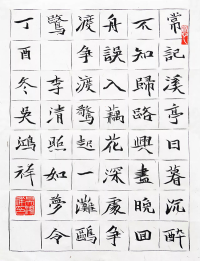 常記溪亭日暮沉醉
不知歸路興盡晚回
舟誤入藕花深處爭
渡爭渡驚起一灘鷗
鷺 李清照如夢令
丁酉冬吳鴻祥